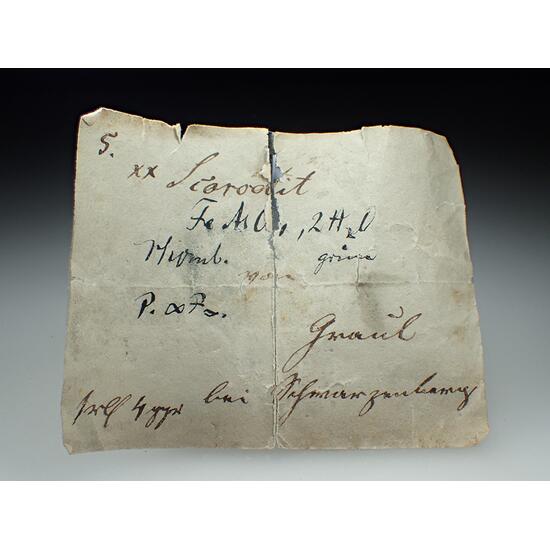 5.
xx Scorodit
Fe AsO₄, 2H₂O
Rhomb. grün
von
P. ∞P∞.
Graul
bei Schwarzenberg